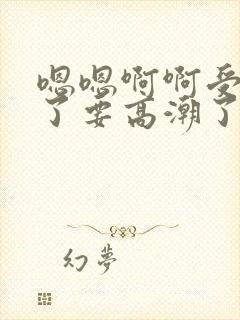 嗯嗯啊啊受
了要高潮了
幻夢